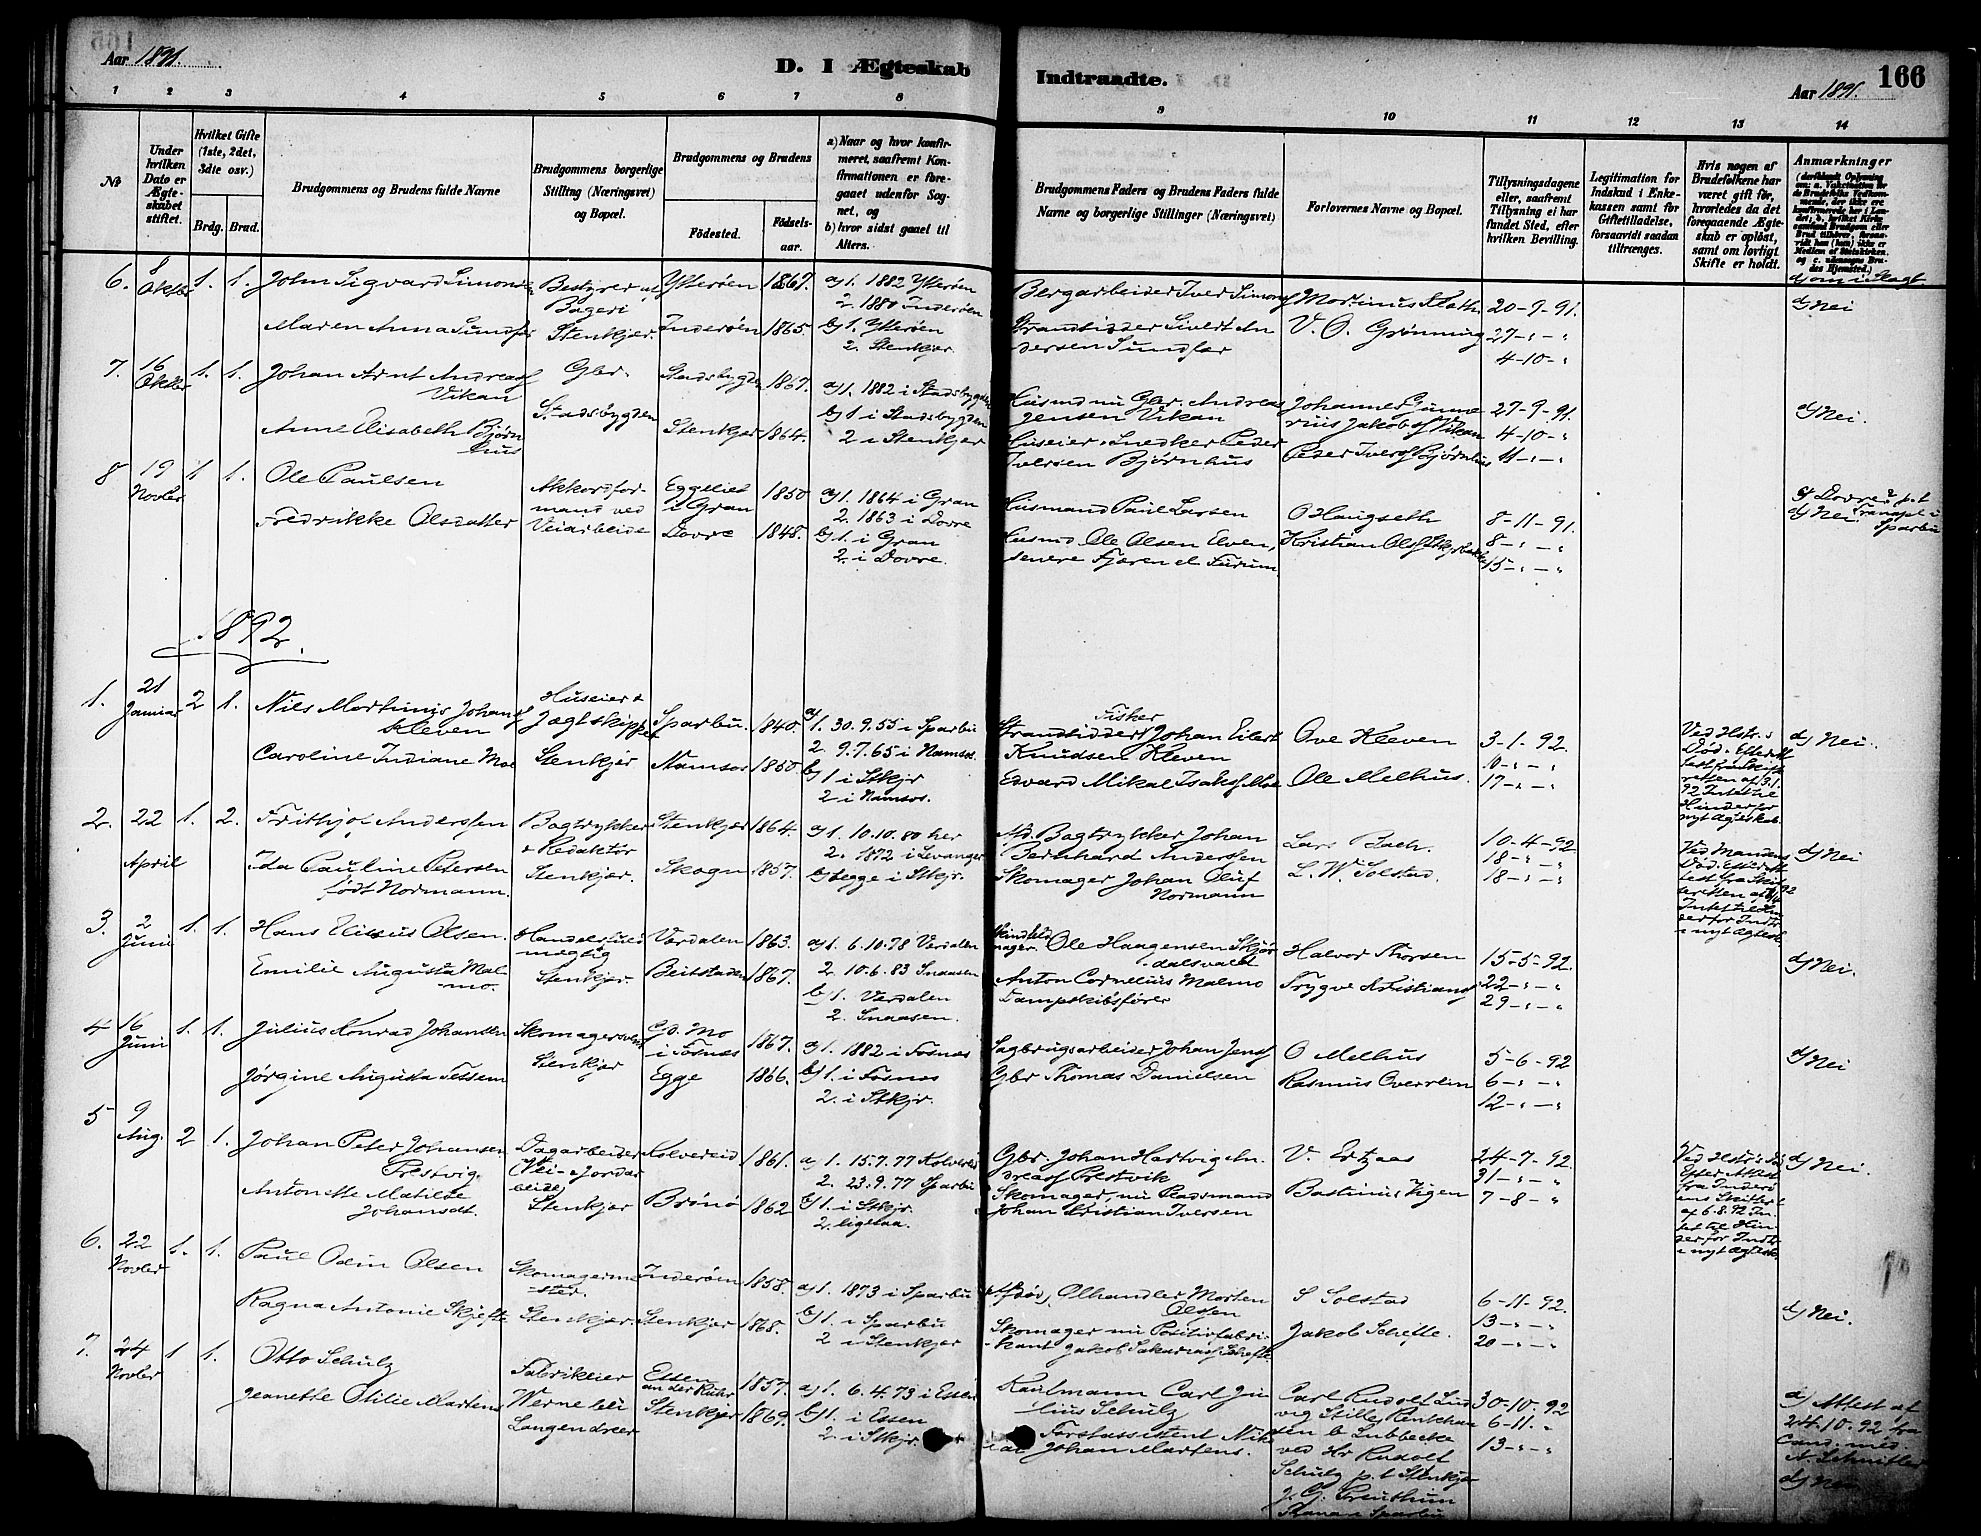 Aar 1891.
D. I Ægteskab
Indtraadte.
Aar 1891.
166
1 2 3 4 5 6 7 8 9 10 11 12 13 14
№
Under hvilken Dato er Ægteskabet stiftet.
Hvilket Gifte (1ste, 2det, 3die osv.)
Brdg. Brud.
Brudgommens og Brudens fulde Navne
Brudgommens borgerlige Stilling (Næringsvei) og Bopæl.
Brudgommens og Brudens
Fødested.
Fødselsaar.
a) Naar og hvor konfirmeret, saafremt Konfirmationen er foregaaet udenfor Sognet, og
b) hvor sidst gaaet til Alters.
Brudgommens Faders og Brudens Faders fulde Navne og borgerlige Stillinger (Næringsvei)
Forlovernes Navne og Bopæl.
Tillysningsdagene eller, saafremt Tillysning ei har fundet Sted, efter hvilken Bevilling.
Legitimation for Indskud i Enkekassen samt for Giftetilladelse, forsaavidt saadan tiltrænges.
Hvis nogen af Brudefolkene har været gift før, hvorledes da det foregaaende Ægteskab er opløst, samt om lovligt Skifte er holdt.
Anmærkninger
6. 8 Oktbr 1. 1.
John Sigvard Simons
Bestyrer af Bageri Stenkjær.
Ytterøen 1867.
a) 1. 1882 Ytterøen
2. 1880 Inderøen
b) 1. Ytterøen
2. Stenkjær.
Maren Anna Sundfær
Inderøen 1865.
Bergarbeider Iver Simons
Strandsidder Sivert Andersen Sundfær
Martinus Flath
V. O. Grønning
20-9-91.
27-"-"
4-10-"
d) Nei
7. 16 Oktbr 1. 1.
Johan Arnt Andreas Vikan
Gbr. Stadsbygden
Stadsbygden 1867.
a) 1. 1882 i Stadsbygden
b) 1 i Stadsbygden
2 i Stenkjær
Anne Elisabeth Bjørnhus
Stenkjær 1864.
Husmd nu Gbr. Andreas Jensen Vikan
Huseier, Snedker Peder Iversen Bjørnhus
Johannes Gunnerius Jakobs Vikan
Peder Ivers Bjørnhus
27-9-91.
4-10-"
11-"-"
d) Nei.
8 19 Novbr 1 1.
Ole Paulsen
Akkordformand ved Veiarbeide
Eggeliet i Gran 1850
a) 1. 1864 i Gran
2. 1863 i Dovre
b) 1. i Gran
2. i Dovre.
Fredrikke Olsdatter
Dovre 1848.
Husmand Paul Larsen
Husmd Ole Olsen Elven, senere Fjæren el Furum.
O Haugseth
Kristian Ols
8-11-91.
8-"-"
15-"-"
Dovre, p.t Tranapl i Sparbu
d) Nei
1892.
1. 21 Januar 2 1.
Nils Martinus Johans Kleven
Huseier & Jægtskipper Stenkjær
Sparbu. 1840.
a) 1. 30.9.55 i Sparbu
2. 9.7.65 i Namsos.
b) 1 i Stkjr
2 i Namsos.
Caroline Indiane Moe
Namsos 1850.
Fisker
Strandsidder Johan Eilert Knudsen Kleven
Edvard Mikal Isaks Moe
Ove Kleven
Ole Melhus.
3-1-92.
10-"-"
17-"-"
Ved Hstr.s Død. Efter Attest fra Skifteretten af 3.1.92 Intet til Hinder for nyt Ægteskab.
d) Nei.
2. 22 April 1. 2.
Frithjof Anderssen
Bogtrykker & Redaktør Stenkjær.
Stenkjær 1864.
a) 1. 10.10.80 her
2. 1872 i Levanger
b) begge i Stkjr.
Ida Pauline Petersen født Normann.
Skogn 1857.
Afd. Bogtrykker Johan Bernhard Anderssen
Skomager Johan Oluf Normann
Lars Bach.
L. W. Solstad.
10-4-92.
18-"-"
18-"-"
Ved Mandens Død. Efter Attest fra Skifteretten
d) Nei
3. 2 Juni 1. 1.
Hans Elisæus Olsen.
Handelsfuldmægtig Stenkjær.
Verdalen 1863.
a) 1. 6.10.78 Verdalen
2. 10.6.83 Snaasen
b) 1. Verdalen
2. Snaasen.
Emilie Augusta Malmo.
Beitstaden 1867.
Skindfeldmager. Ole Haagensen Skjørdalsvald
Anton Cornelius Malmo Dampskibsfører
Halvor Thorsen
Trygve Kristians
15-5-92.
22-"-"
29-"-"
d) Nei.
4 16 Juni 1. 1.
Julius Konrad Johansen
Skomagersvend Stenkjær
Mo i Fosnæs 1867.
a) 1. 1882 i Fosnæs
b) 1. i Fosnæs
2. i Stkjr.
Jørgine Augusta Tessem
Egge 1866.
Sagbrugsarbeider Johan Jens
Gbr Thomas Danielsen
O Melhus
Rasmus Overrein
5-6-92
6-"-"
12-"-"
d) Nei
5 9 Aug. 2 1.
Johan Peter Johansen Prestvig.
Dagarbeider (Vei- & Jordarbeide) Stenkjær
Kolvereid 1861.
a) 1. 15.7.77 Kolvereid
2. 23.9.77 Sparbu
b) 1. i Stkjr.
2. ligesaa.
Antonette Matilde Johansdt.
Brønø 1862
Gbr. Johan Hartvig Andreas Prestvik
Skomager, nu Pladsmand Johan Kristian Iversen
V. Ertzaas
Bastinius Vigen
24-7-92.
31-"-"
7-8-"
Ved Hstr.s Død. Efter Attest fra Inderøens Skifteret af 6.8.92 Intet til Hinder for Indtr. i nyt Ægtesk.
d) Nei.
6. 22 Novbr 1. 1.
Paul Odin Olsen
Skomagermester. Stenkjær
Inderøen 1858.
a) 1. 1873 i Sparbu
b) 1. i Sparbu
2 i Stenkjær
Ragna Antonie Skjefte
Stenkjær 1868.
Afdød, Olhandler Morten Olsen
Skomager nu Positivfabrikant Jakob Sakarias Schefte
S Solstad
Jakob Schefte.
6-11-92.
13-"-"
20-"-"
d) Nei.
7. 24 Novbr 1 1.
Otto Schulz
Fabrikeier Werne bei Langendreer
Essen an der Ruhr 1857.
a) 1. 6.4.73 i Essen
b) 1. i Essen
2. i Stkjr.
Jeanette Otilie Martens
Stenkjær 1869.
Kaufmann Carl Julius Schulz
Forstassistent Nikolai Johan Martens.
Carl Rudolf Ludvig Stille, Renkhausen b Lubbecke ved Hr Rudolf Schulz p.t Stenkjær
J. G. Preuthun Mære Sparbu
30-10-92
6-11-"
13-"-"
a) Attest af 24.10.92 fra Cand. med. A. Schnitler
d) Nei